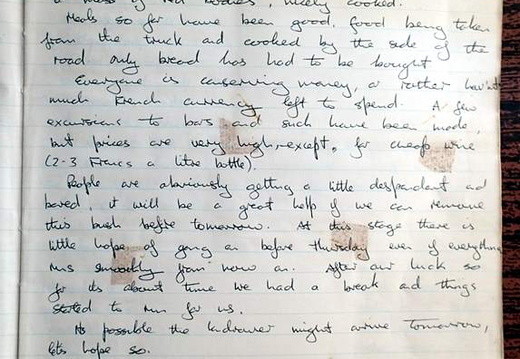 a mass of red bodies, nicely cooked.
Meals so far have been good, food being taken
from the truck ad cooked by the side of the
road only bread has had to be bought
Everyone is conserving money, or rather hav'nt
much French currency left to spend. A few
excursions to bars and such have been made,
but prices are very high, except, for cheap wine
(2-3 Francs a litre bottle).
People are obviously getting a little despondent ad
bored, it will be a great help if we can remove
this bush before tomorrow. At this stage there is
little hope of going on before thursday even if everything
runs smoothly from now on. After our luck so
far its about time we had a break ad things
started to run for us.
Its possible the might arrive tomorrow,
lets hope so.